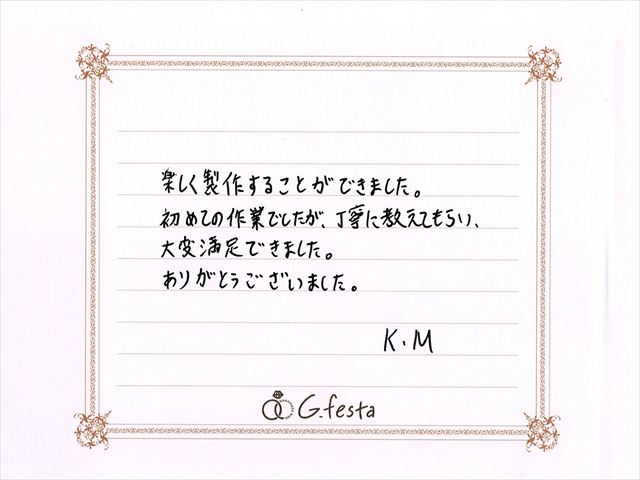 楽しく製作することができました。
初めての作業でしたが、丁寧に教えてもらい、
大変満足できました。
ありがとうございました。
K.M
G.festa